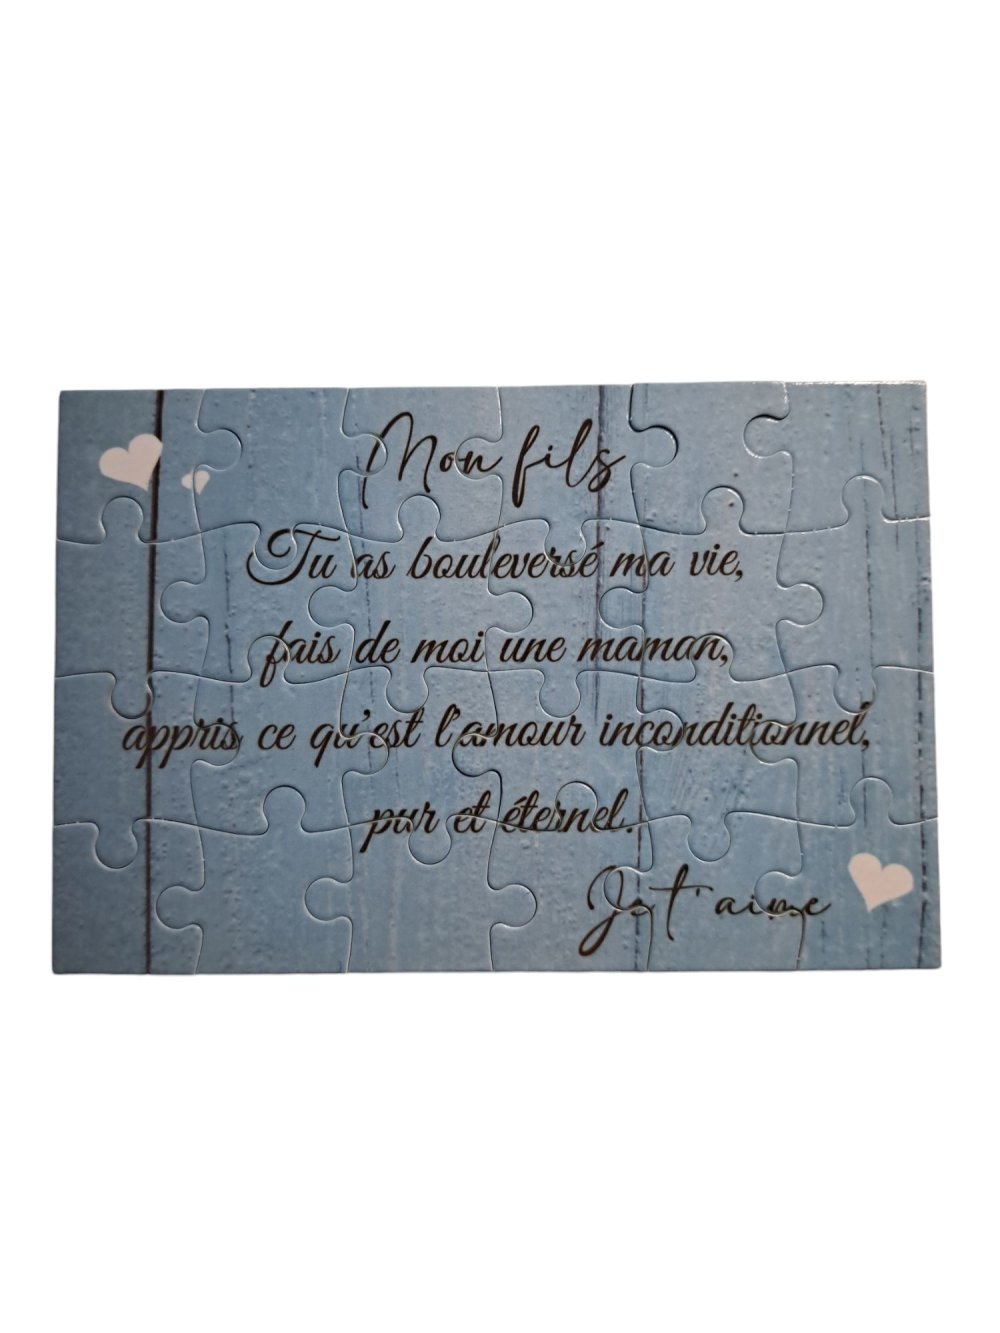 Mon fils
Tu as bouleversé ma vie,
fais de moi une maman,
appris ce qu'est l'amour inconditionnel,
pur et éternel.
Je t'aime